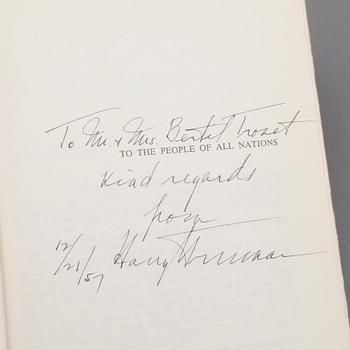 To Mr. & Mrs. Bertil
TO THE PEOPLE OF ALL NATIONS
Kind regards
from
12/21/57 Harry Truman